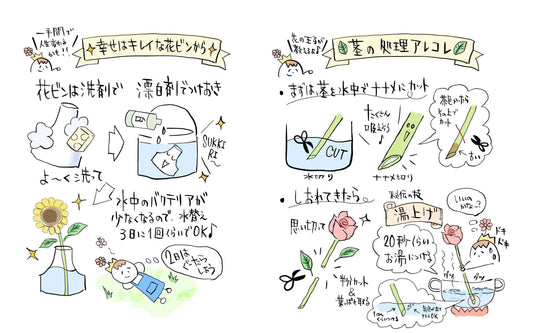 一手間で
人生変わる
かも!!
幸せはキレイな花ビンから
花ビンは洗剤で
よ〜く洗って
漂白剤につけおき
SUKKI
RI〜
水中のバクテリアが
少なくなるので、水替え
3日に1回くらいでOK♪
2日は
ぐ〜たら
しよう
花の王子が
教えるよ♪
茎の処理アレコレ
・まずは茎を水中でナナメにカット
CUT
水切り
たくさん
吸えそう
ナナメ切り
カット
・しおれてきたら。
思い切って
半分カット
&
葉っぱも取る
秘伝の技
湯上げ
20秒くらい
お湯につける
いいの
かな…?
ドキ
ドキ
グツ
グツ